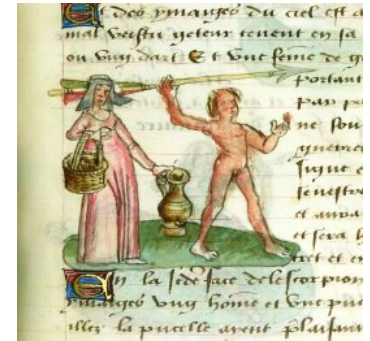 Et des ymaiges du ciel est a
mal vestu geteur tenent en sa
ou ung dart Et vne feme de g
portant
par p
ne sou
guerre
signe e
se vestre
et auva
et sera h
et en
En la sede face de lescorpion
ymaiges ung home et vne puc
illec la pucelle ayent plaisan